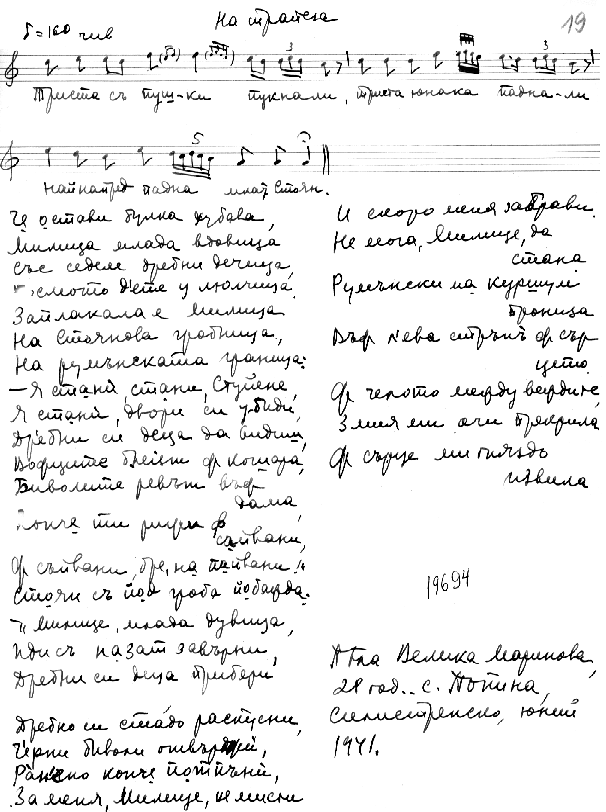 На трапеза
19
♪=160 чив
3
3
Триста съ пуш-ки пукнали, триста юнака паднали
5
Найнапред падна млад Стоян.
Че остави булка хубава,
Милица млада вдовица
със седем дребни дечица,
осмото дете у люлчица.
Заплакала е Милица
На Стоянова гробница,
На румънската граница:
– Я стани, стани, Стуйене,
Я стани, двори си убиди,
Дребни си деца да видиш,
Вофците блейът ф кошара,
Биволите реват въф
дама,
Конче ти рипи ф
съйвани,
Ф съйвани, бре, на пайвани!
Стоян съ под гроба побарда.
– Милице, млада дувица,
Иди съ назат завърни,
Дребни си деца прибери
Дребно си стадо распусни,
Черни биволи отвържи,
Ранено конче потпъни,
За меня, Милице, не мисли
И скоро меня забрави.
Не мога, Милице, да
стана
Румънски ма куршум
проница
Въф лева стръпъ ф сър
цето
Ф челото между веждите,
Змия ми очи прекрила
Ф сърце ми гняздо
извила
19694
Пяла Велика Маринова,
28 год., с. Попина,
Силистренско, юний
1941.